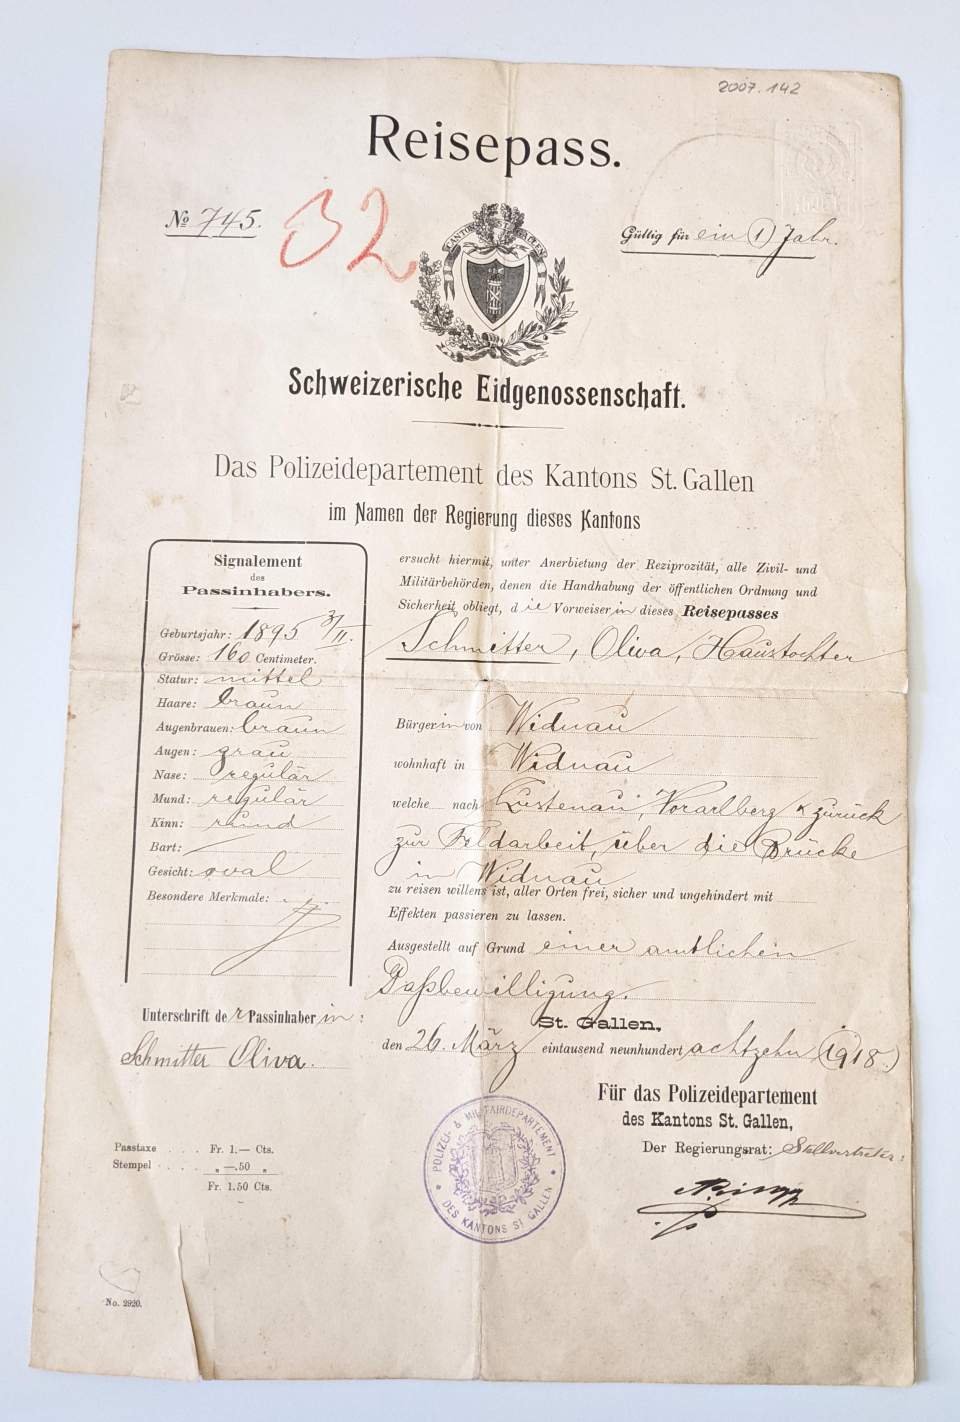 2007.142
Reisepass.
№ 745.
32
Gültig für ein (1) Jahr.
KANTON ST. GALLEN
Schweizerische Eidgenossenschaft.
Das Polizeidepartement des Kantons St. Gallen
im Namen der Regierung dieses Kantons
Signalement
des
Passinhabers.
Geburtsjahr: 1895 3/II.
Grösse: 160 Centimeter.
Statur: mittel
Haare: braun
Augenbrauen: braun
Augen: grau
Nase: regulär
Mund: regulär
Kinn: rund
Bart: —
Gesicht: oval
Besondere Merkmale:
Unterschrift der Passinhaberin:
Schmitter Oliva.
Passtaxe . . . . Fr. 1.— Cts.
Stempel . . . . „ —.50 „
Fr. 1.50 Cts.
No. 2920.
ersucht hiermit, unter Anerbietung der Reziprozität, alle Zivil- und
Militärbehörden, denen die Handhabung der öffentlichen Ordnung und
Sicherheit obliegt, die Vorweiserin dieses Reisepasses
Schmitter, Oliva, Haustochter
Bürgerin von Widnau
wohnhaft in Widnau
welche nach Lustenau, Vorarlberg & zurück
zur Feldarbeit, über die Brücke
in Widnau
zu reisen willens ist, aller Orten frei, sicher und ungehindert mit
Effekten passieren zu lassen.
Ausgestellt auf Grund einer amtlichen
Paßbewilligung.
St. Gallen,
den 26. März eintausend neunhundert achtzehn (1918.)
Für das Polizeidepartement
des Kantons St. Gallen,
Der Regierungsrat: Stellvertreter:
POLIZEI- & MILITAIRDEPARTEMENT
DES KANTONS ST GALLEN